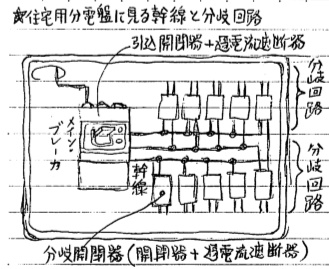 ☆住宅用分電盤に見る幹線と分岐回路
引込開閉器+過電流遮断器
メイン・ブレーカ
幹線
分岐回路
分岐回路
分岐開閉器(開閉器+過電流遮断器)